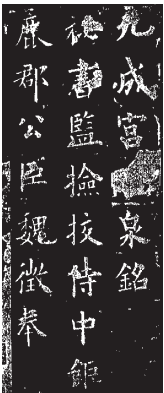 九成宮泉銘
秘書監撿挍侍中鉅
鹿郡公臣魏徵奉